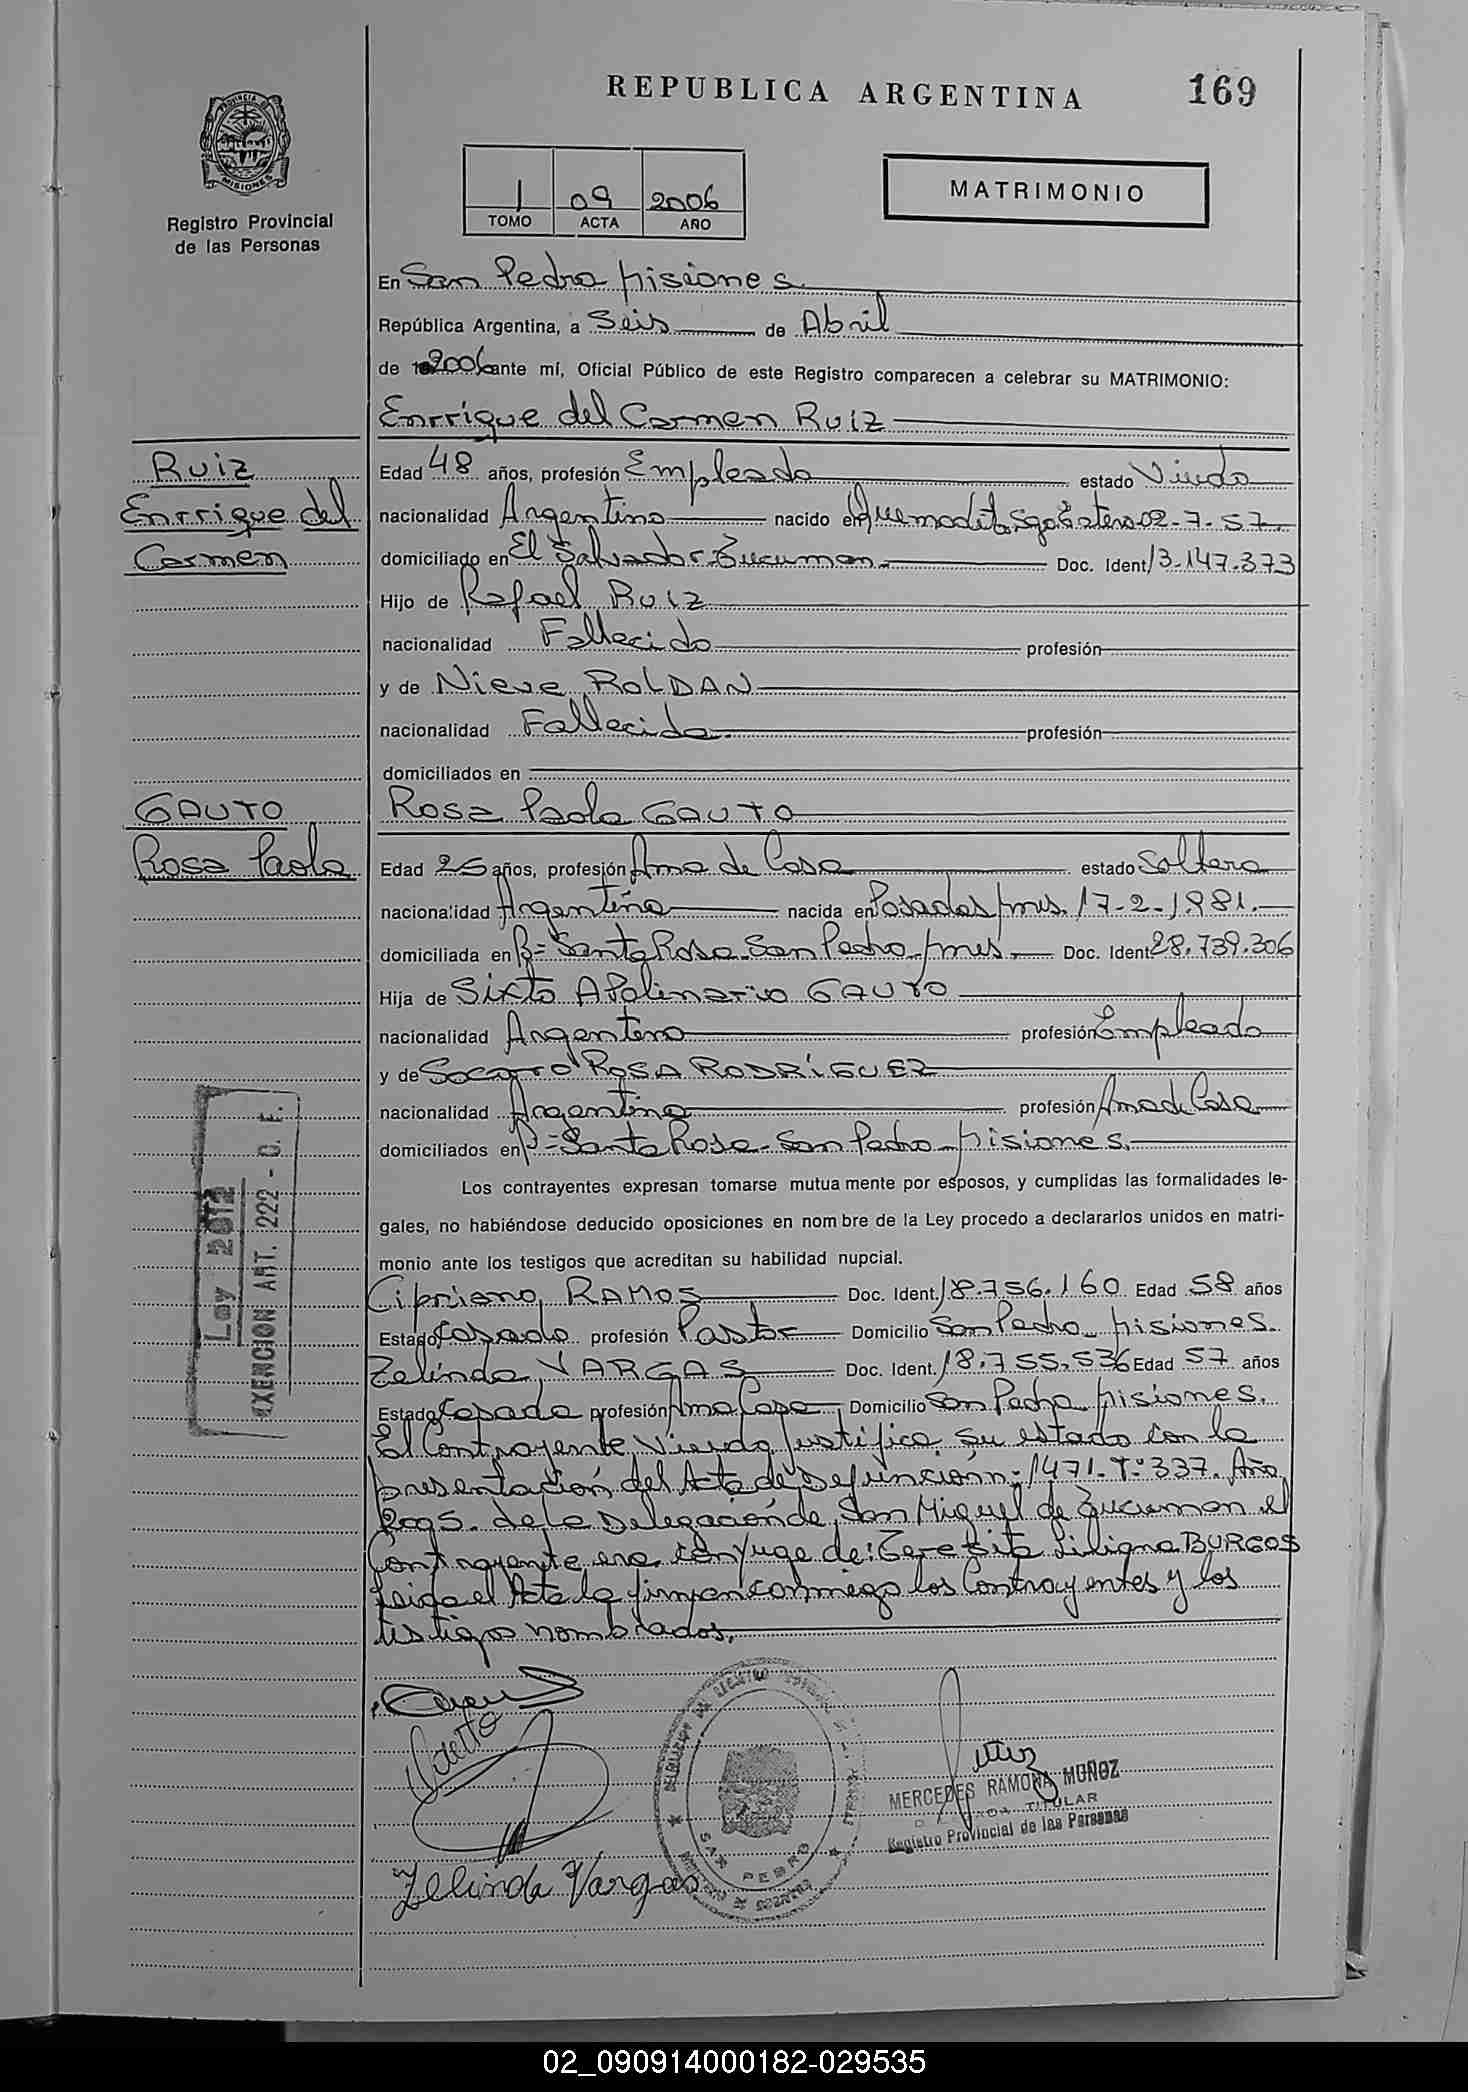 REPUBLICA ARGENTINA
169
PROVINCIA DE
MISIONES
Registro Provincial
de las Personas
1 09 2006
TOMO ACTA AÑO
MATRIMONIO
En San Pedro Misiones
República Argentina, a Seis de Abril
de 2006 ante mí, Oficial Público de este Registro comparecen a celebrar su MATRIMONIO:
Enrrique del Carmen Ruiz
Ruiz
Enrrique del
Carmen
Edad 48 años, profesión Empleado estado Viudo
nacionalidad Argentino nacido en Quemadito Sgo Estero 02-7-57
domiciliado en El Salvador-Tucuman. Doc. Ident 13.147.373
Hijo de Rafael Ruiz
nacionalidad Fallecido profesión
y de Nieve ROLDAN
nacionalidad Fallecida. profesión
domiciliados en
GAUTO
Rosa Paola
Rosa Paola GAUTO
Edad 25 años, profesión Ama de Casa estado Soltera
nacionalidad Argentina nacida en Posadas Mns. 17-2-1981.
domiciliada en B= Santa Rosa-San Pedro-Mns. Doc. Ident 28.739.306
Hija de Sixto Apolinario GAUTO
nacionalidad Argentino profesión Empleado
y de Socorro ROSA RODRÍGUEZ
nacionalidad Argentina profesión Ama de Casa
domiciliados en B= Santa Rosa-San Pedro-Misiones.
Los contrayentes expresan tomarse mutua mente por esposos, y cumplidas las formalidades le-
gales, no habiéndose deducido oposiciones en nom bre de la Ley procedo a declararlos unidos en matri-
monio ante los testigos que acreditan su habilidad nupcial.
Cipriano RAMOS Doc. Ident. 18.756.160 Edad 58 años
Estado Casado profesión Pastor Domicilio San Pedro-Misiones.
Zelinda VARGAS Doc. Ident. 18.755.536 Edad 57 años
Estado Casada profesión Ama Casa Domicilio San Pedro Misiones.
El Contrayente Viudo Justifica su estado con la
presentación del Acta de Defunción n: 1471-T: 337. Año
de la Delegación de San Miguel de Tucuman el
Contrayente era conyuge de: Teresita Liliana BURGOS
leida el Acta la firman conmigo los Contrayentes y los
testigos nombrados.
Ley 2012
EXENCION ART. 222 - C. F.
Gauto
Zelinda Vargas
SAN PEDRO
MERCEDES RAMONA MUÑOZ
TITULAR
Registro Provincial de las Personas
02_090914000182-029535